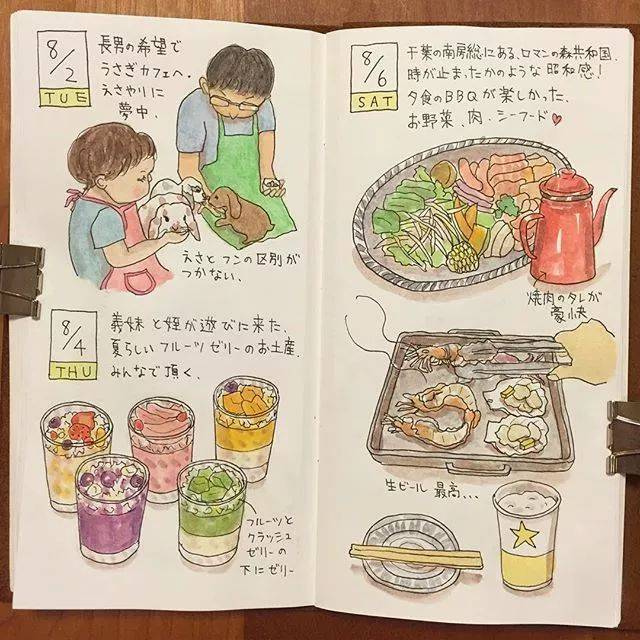 8/2
TUE
長男の希望で
うさぎカフェへ。
えさやりに
夢中、
えさとフンの区別が
つかない、
8/4
THU
義妹と姪が遊びに来た、
夏らしいフルーツゼリーのお土産、
みんなで頂く、
フルーツと
クラッシュ
ゼリーの
下にゼリー
8/6
SAT
千葉の南房総にある、ロマンの森共和国、
時が止まったかのような昭和感！
夕食のBBQが楽しかった、
お野菜、肉、シーフード♥
焼肉のタレが
豪快
生ビール 最高、、、